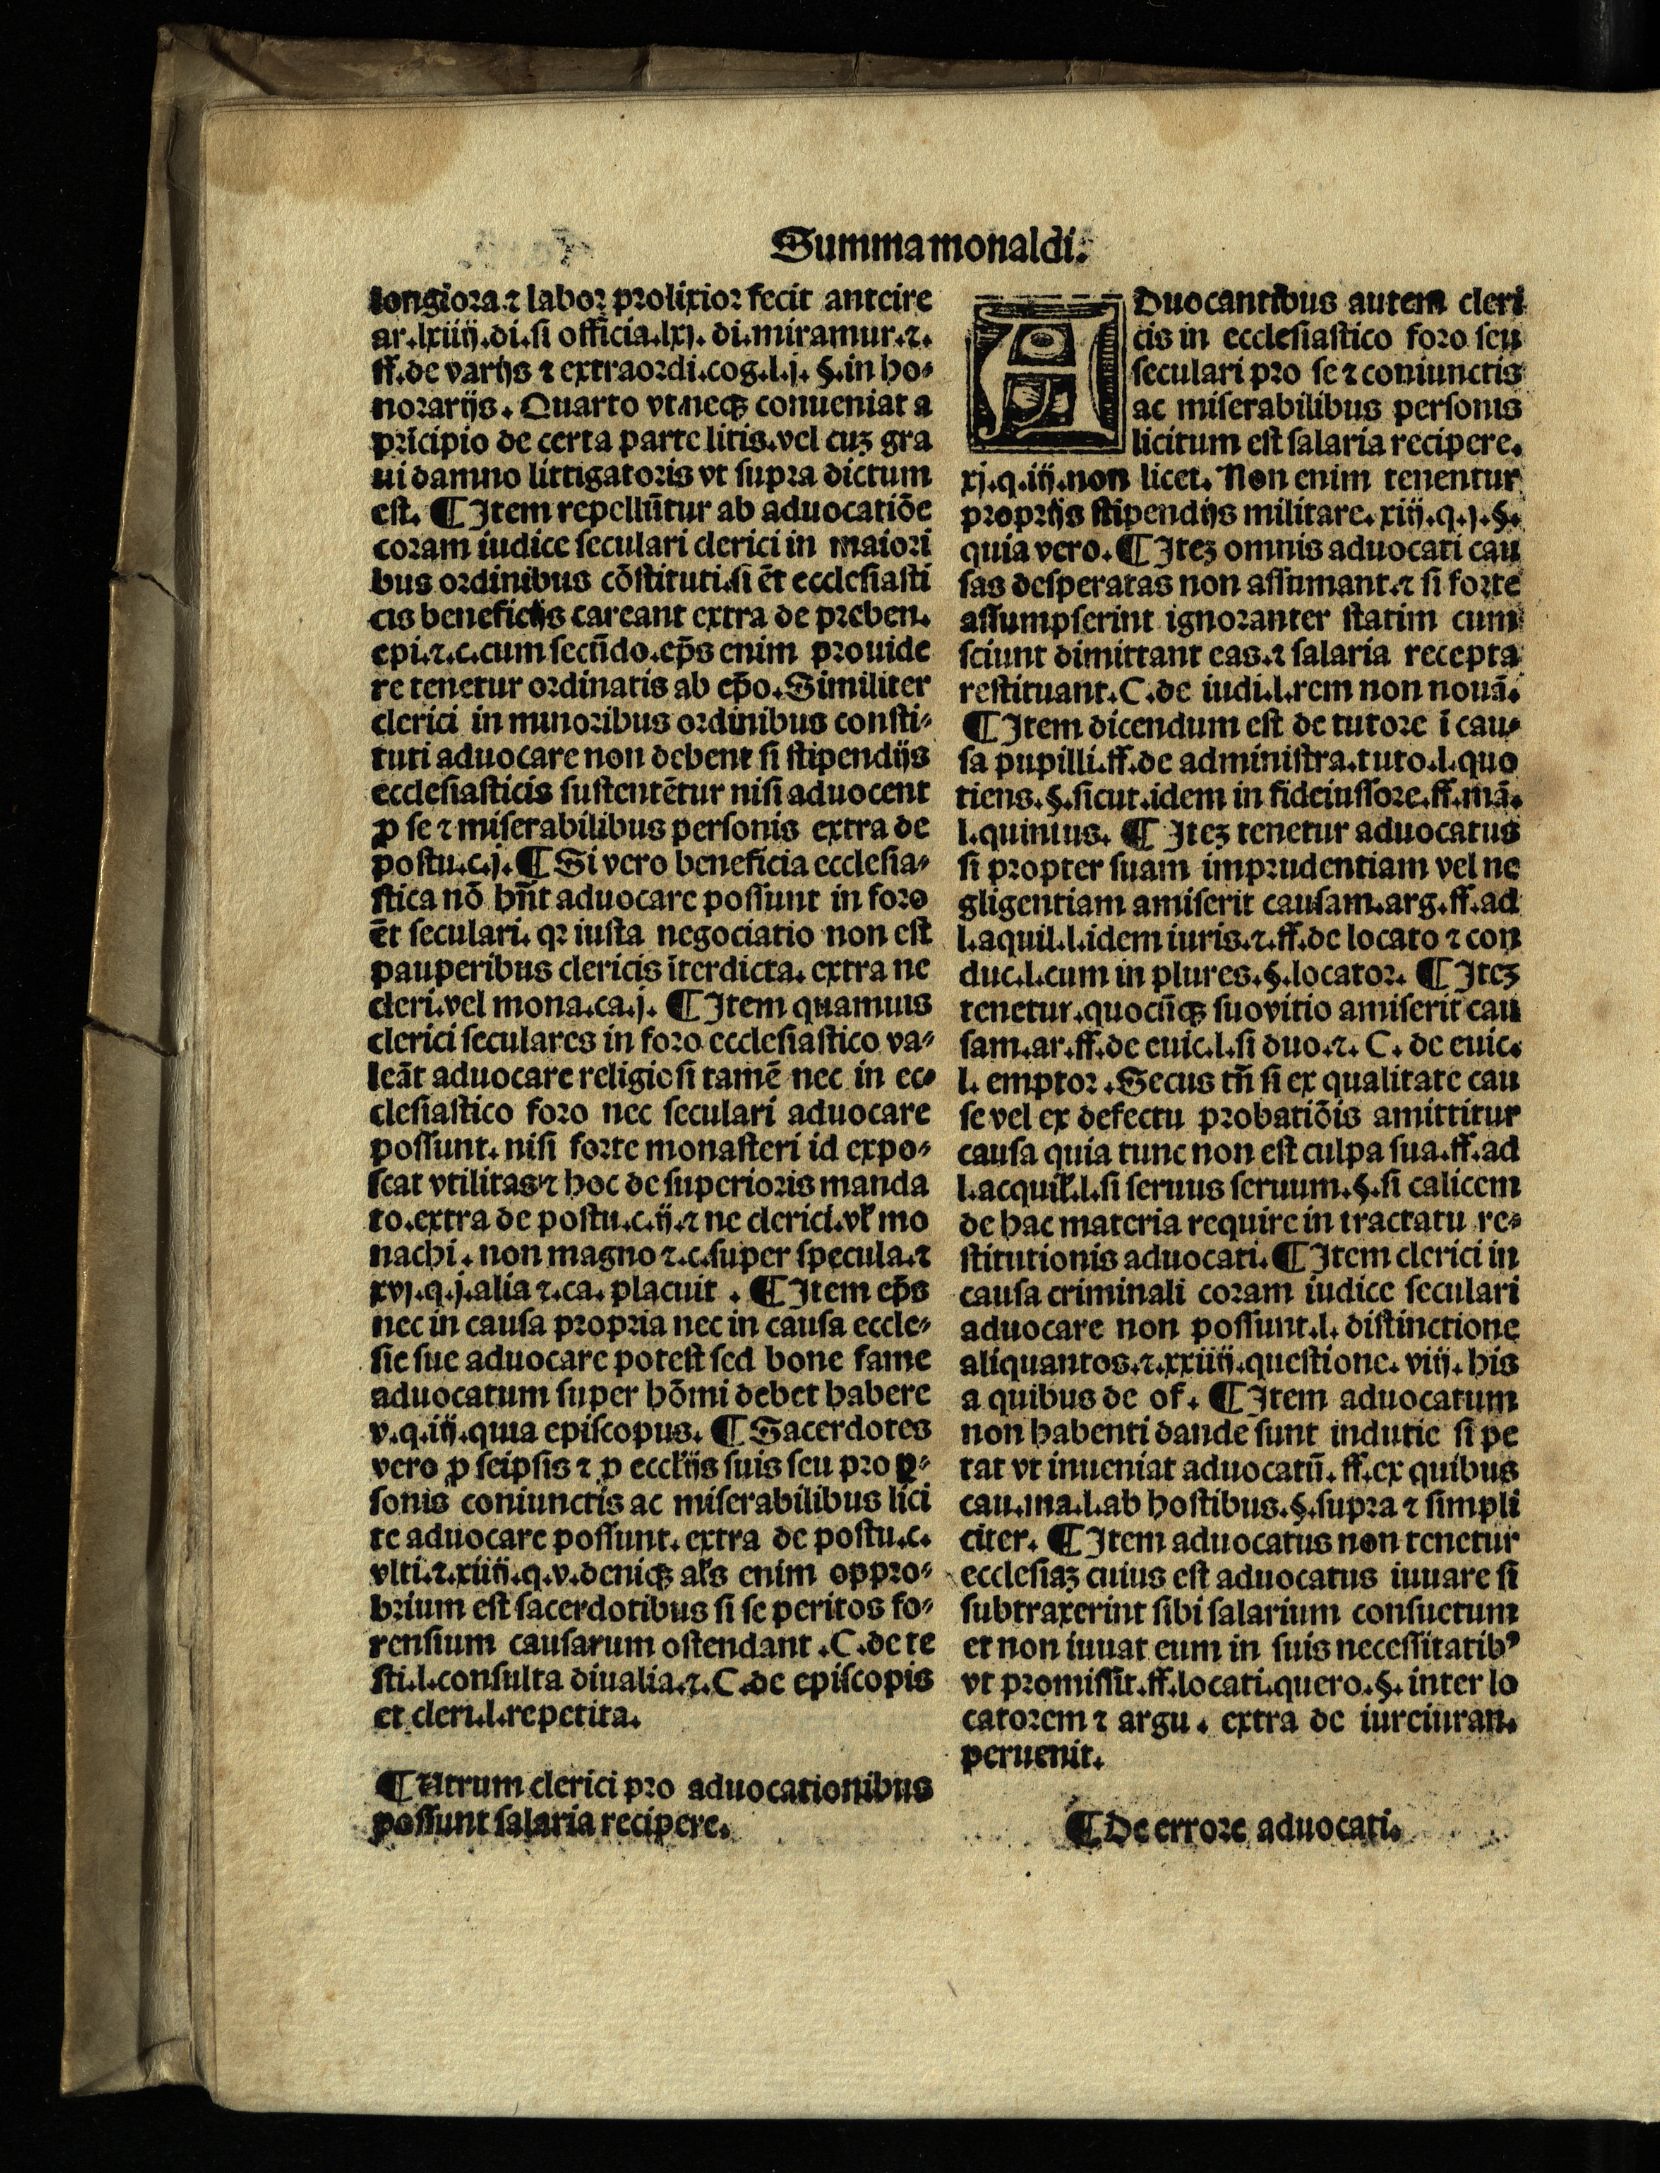 Summa monaldi.
longiora ⁊ labor prolixior fecit anteire
ar.lxiiij.di.si officia.lxj. di.miramur.⁊.
ff.de varijs ⁊ extraordi.cog.l.j. §.in ho⸗
norarijs. Quarto vt neqꝫ conueniat a
prīcipio de certa parte litis.vel cuꝫ gra
ui damno littigatoris vt supra dictum
est. ¶ Item repellūtur ab aduocatiōe
coram iudice seculari clerici in maiori
bus ordinibus cōstituti.si ēt ecclesiasti
cis beneficijs careant extra de preben.
epi.⁊.c.cum secūdo.ep̄s enim prouide
re tenetur ordinatis ab ep̄o. Similiter
clerici in minoribus ordinibus consti⸗
tuti aduocare non debent si stipendijs
ecclesiasticis sustentētur nisi aduocent
ꝓ se ⁊ miserabilibus personis extra de
postu.c.j. ¶ Si vero beneficia ecclesia⸗
stica nō hn̄t aduocare possunt in foro
ēt seculari. qꝛ iusta negociatio non est
pauperibus clericis īterdicta. extra ne
cleri.vel mona.ca.j. ¶ Item quamuis
clerici seculares in foro ecclesiastico va⸗
leāt aduocare religiosi tamē nec in ec⸗
clesiastico foro nec seculari aduocare
possunt. nisi forte monasteri id expo⸗
scat vtilitas ⁊ hoc de superioris manda
to.extra de postu.c.ij.⁊ ne clerici.vl̓ mo
nachi. non magno ⁊.c.super specula.⁊
xvj.q.j.alia ⁊.ca. placuit . ¶ Item ep̄s
nec in causa propria nec in causa eccle⸗
sie sue aduocare potest sed bone fame
aduocatum super hōmi debet habere
v.q.iij.quia episcopus. ¶ Sacerdotes
vero ꝓ seipsis ⁊ ꝓ eccl̓ijs suis seu pro ꝑ⸗
sonis coniunctis ac miserabilibus lici
te aduocare possunt. extra de postu.c.
vlti.⁊.xiiij.q.v.deniqꝫ al̓s enim oppro⸗
brium est sacerdotibus si se peritos fo⸗
rensium causarum ostendant .C.de te
sti.l.consulta diualia.⁊.C.de episcopis
et cleri.l.repetita.
¶ Utrum clerici pro aduocationibus
possunt salaria recipere.
ADuocantibus autem cleri
cis in ecclesiastico foro seu
seculari pro se ⁊ coniunctis
ac miserabilibus personis
licitum est salaria recipere.
xj.q.iij.non licet. Non enim tenentur
proprijs stipendijs militare. xiij.q.j.§.
quia vero. ¶ Iteꝫ omnis aduocati cau
sas desperatas non assumant.⁊ si forte
assumpserint ignoranter statim cum
sciunt dimittant eas.⁊ salaria recepta
restituant. C.de iudi.l.rem non nouā.
¶ Item dicendum est de tutore ī cau⸗
sa pupilli.ff.de administra.tuto.l.quo
tiens.§.sicut.idem in fideiussore.ff.mā.
l.quintus. ¶ Iteꝫ tenetur aduocatus
si propter suam imprudentiam vel ne
gligentiam amiserit causam.arg.ff.ad
l.aquil.l.idem iuris.⁊.ff.de locato ⁊ con
duc.l.cum in plures.§.locator. ¶ Iteꝫ
tenetur.quocūqꝫ suo vitio amiserit cau
sam.ar.ff.de euic.l.si duo.⁊. C. de euic.
l. emptor .Secus tn̄ si ex qualitate cau
se vel ex defectu probatiōis amittitur
causa quia tunc non est culpa sua.ff.ad
l.acquil̓.l.si seruus seruum.§.si calicem
de hac materia require in tractatu re⸗
stitutionis aduocati. ¶ Item clerici in
causa criminali coram iudice seculari
aduocare non possunt.l. distinctione
aliquantos.⁊.xxiiij.questione. viij. his
a quibus de of. ¶ Item aduocatum
non habenti dande sunt indutie si pe
tat vt inueniat aduocatū. ff.ex quibus
cau.ma.l.ab hostibus.§.supra ⁊ simpli
citer. ¶ Item aduocatus non tenetur
ecclesiaꝫ cuius est aduocatus iuuare si
subtraxerint sibi salarium consuetum
et non iuuat eum in suis necessitatibꝰ
vt promissit.ff.locati.quero.§. inter lo
catorem ⁊ argu . extra de iureiuran.
peruenit.
¶ De errore aduocati.